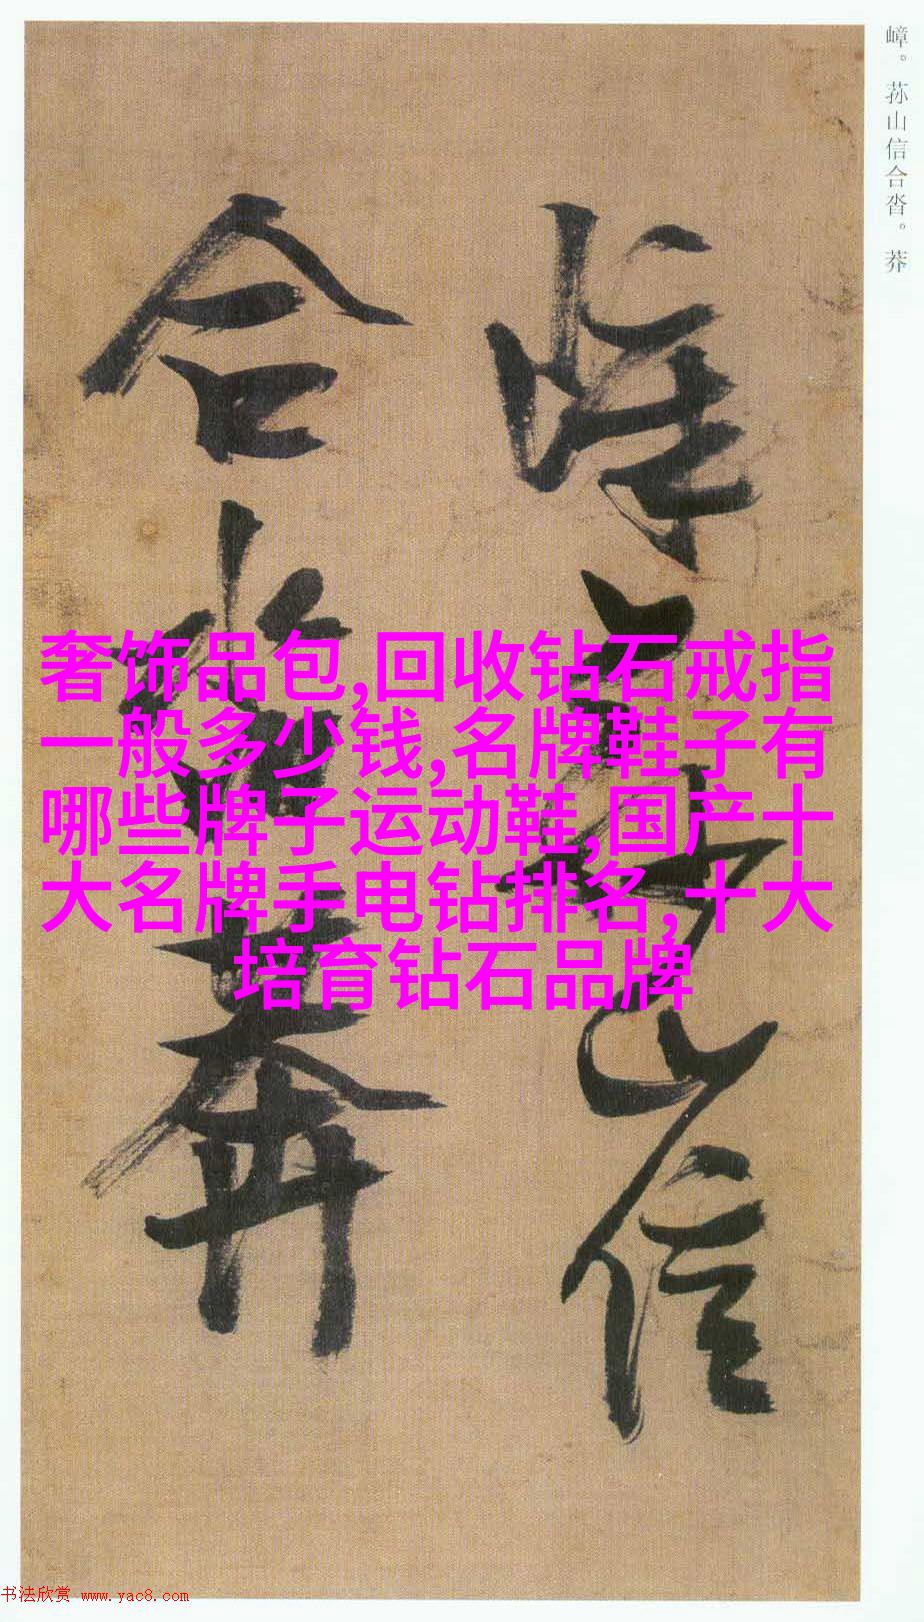 嶂。荪山信合沓。莽
嶂荪山信
合沓莽
奢饰品包,回收钻石戒指
一般多少钱,名牌鞋子有
哪些牌子运动鞋,国产十
大名牌手电钻排名,十大
培育钻石品牌
书法欣赏 www.yac8.com